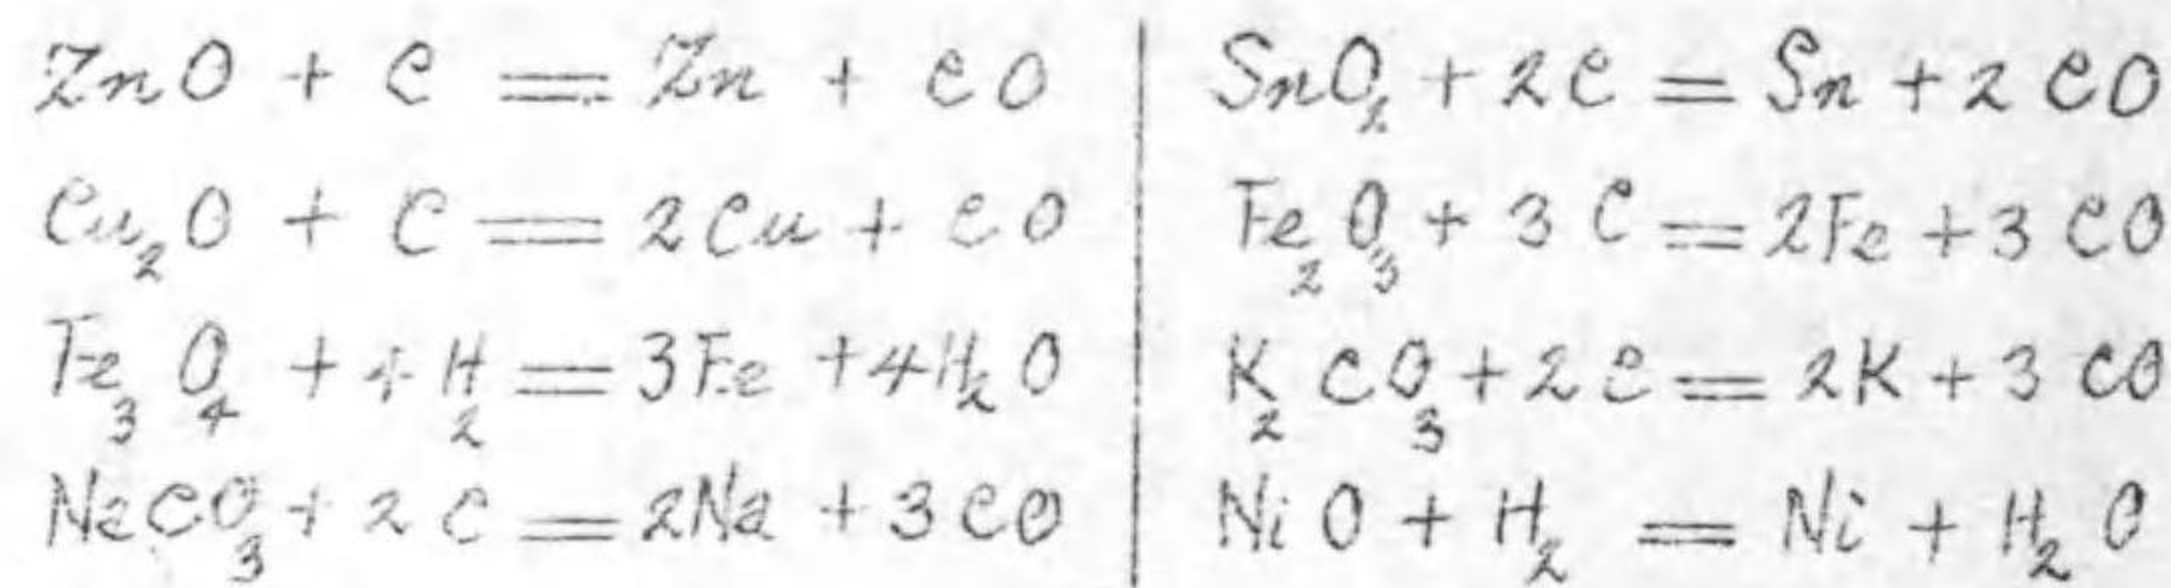 ZnO + C = Zn + CO
Cu₂O + C = 2Cu + CO
Fe₃O₄ + 4H₂ = 3Fe + 4H₂O
NaCO₃ + 2C = 2Na + 3CO
SnO₂ + 2C = Sn + 2CO
Fe₂O₃ + 3C = 2Fe + 3CO
K₂CO₃ + 2C = 2K + 3CO
NiO + H₂ = Ni + H₂O